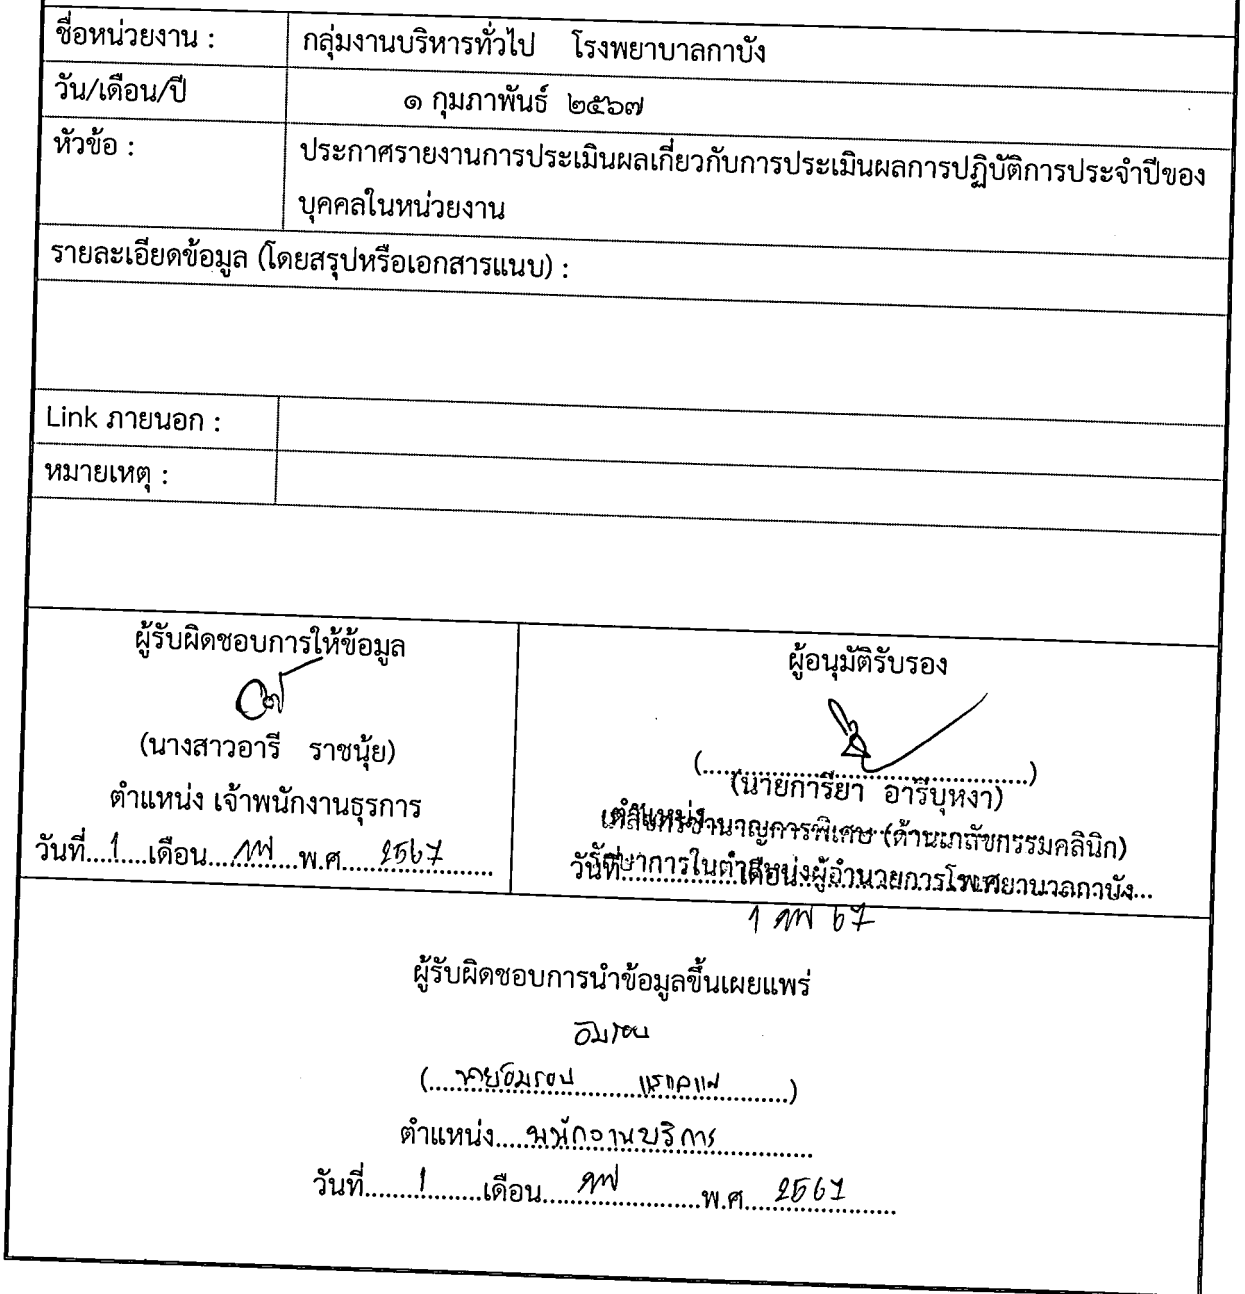 ชื่อหน่วยงาน : กลุ่มงานบริหารทั่วไป โรงพยาบาลกาบัง
วัน/เดือน/ปี ๑ กุมภาพันธ์ ๒๕๖๗
หัวข้อ : ประกาศรายงานการประเมินผลเกี่ยวกับการประเมินผลการปฏิบัติการประจำปีของ
บุคคลในหน่วยงาน
รายละเอียดข้อมูล (โดยสรุปหรือเอกสารแนบ) :
Link ภายนอก :
หมายเหตุ :
ผู้รับผิดชอบการให้ข้อมูล
(นางสาวอารี ราชนุ้ย)
ตำแหน่ง เจ้าพนักงานธุรการ
วันที่....1....เดือน....กพ....พ.ศ....2567....
ผู้อนุมัติรับรอง
(นายการียา อารีบุหงา)
ตำแหน่ง
เภสัชกรชำนาญการพิเศษ (ด้านเภสัชกรรมคลินิก)
วันที่ เดือน
รักษาการในตำแหน่งผู้อำนวยการโรงพยาบาลกาบัง
1 กพ 67
ผู้รับผิดชอบการนำข้อมูลขึ้นเผยแพร่
(....นาย....)
ตำแหน่ง....พนักงานบริการ....
วันที่....1....เดือน....กพ....พ.ศ....2567....